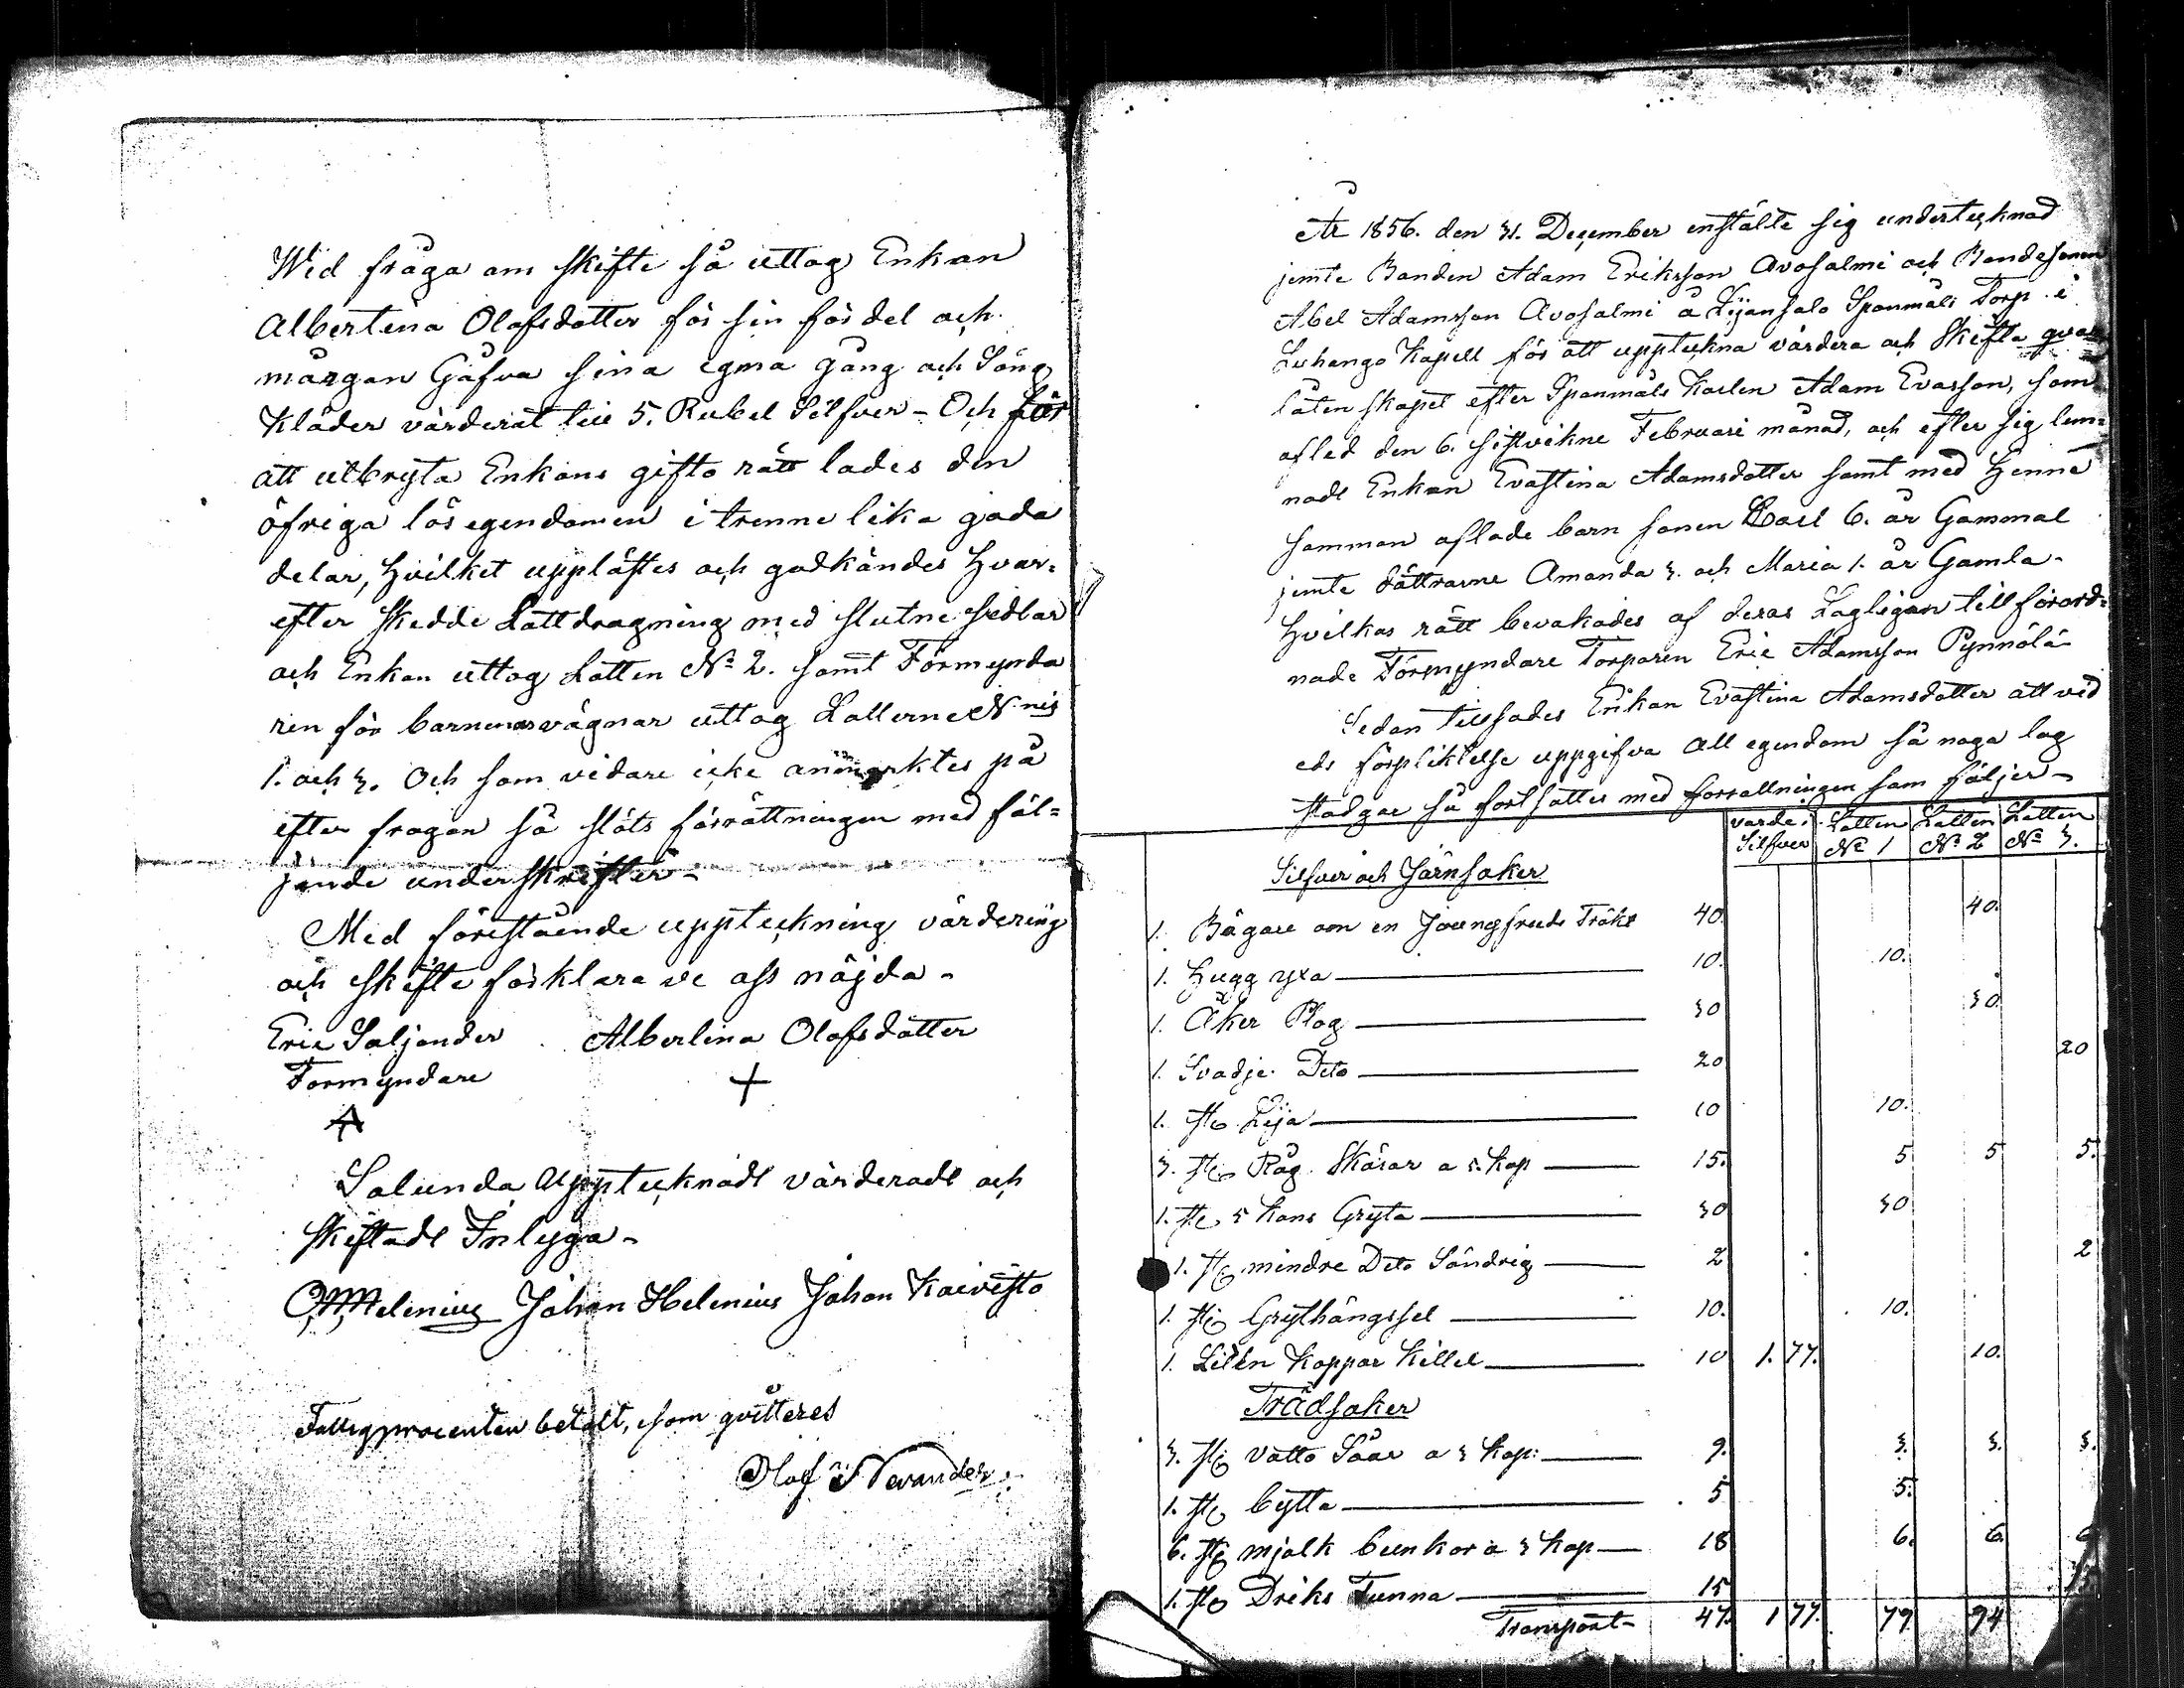 Wid fråga om skifte så uttog Enkan
Albertina Olofsdotter för sin fördel och
morgon Gåfva sina egma gång och Säng
Kläder värderat till 5. Rubel Silfver - Och för
att utbryta Enkans gifto rätt lades den
öfriga lösegendomen i trenne lika goda
delar, hvilket upplästes och godkändes hvar=
efter skedde Lottdragning med slutne sedlar
och Enkan uttog Lotten No 2. samt Förmynda
ren för barnenas vägnar uttog Lotterne N nis
1. och 3. Och som vidare icke anmärktes på
efter frogan så slöts förrättningen med föl=
jande underskrifter -
Med förestående uppteckning värdering
och skifte förklara vi oss nöjda -
Eric Saljander Albertina Olofsdotter
Formyndare +
A
Salunda Upptecknadt värderadt och
skiftadt Intyga -
Melenius Johan Helenius Johan Koivisto
Fattigprocenten betalt, som qvitteres
Olof Nevander
År 1856. den 31. December instälte sig undertecknad
jemte Bonden Adam Eriksson Avosalmi och Bondesonen
Abel Adamsson Avosalmi å Lijansalo Sponmåls Torp i
Luhango Kapell för att uppteckna värdera och Skifta qvar
låtenskapet efter Sponmåls Karlen Adam Evasson, som
afled den 6. sistvikne Februari månad, och efter sig lem=
nadt Enkan Evastina Adamsdotter samt med Henne
samman aflade barn sonen Karl 6. år Gammal
jemte döttrarne Amanda 3. och Maria 1. år Gamla -
Hvilkas rätt bevakades af deras Lagligan tillförord=
nade Förmyndare Torparen Eric Adamsson Pynnölä
Sedan tillsades Enkan Evastina Adamsdotter att vid
eds förpliktelse uppgifva All egendom så noga lag
stadgar så fortsattes med forrattningen som följer -
varde i Silfver Lotten No 1 Lotten No 2 Lotten No 3.
Silfver och Järnsaker
1. Bägare om en Joungfruds 40. 40.
1. Hugg yxa 10. 10.
1. Åker Plog 30 30
1. Svadje Deto 20 20
1. st Lija 10 10.
3. st Råg Skäror a 5. Kop 15. 5 5 5.
1. st 5 Kans Gryta 30 30
1. st mindre Deto Söndrig 2 2
1. st Grythängssel 10. 10.
1. Liten Koppar Kittel 10 1. 77. 10.
Trädsaker
3. st vatto Såar a 3 Kop: 9. 3. 3. 3.
1. st bytta 5 5.
6. st mjolk bunkor a 3 Kop 18 6. 6. 6
1. st Driks Tunna 15 15
Transport 47. 1 77. 79 94